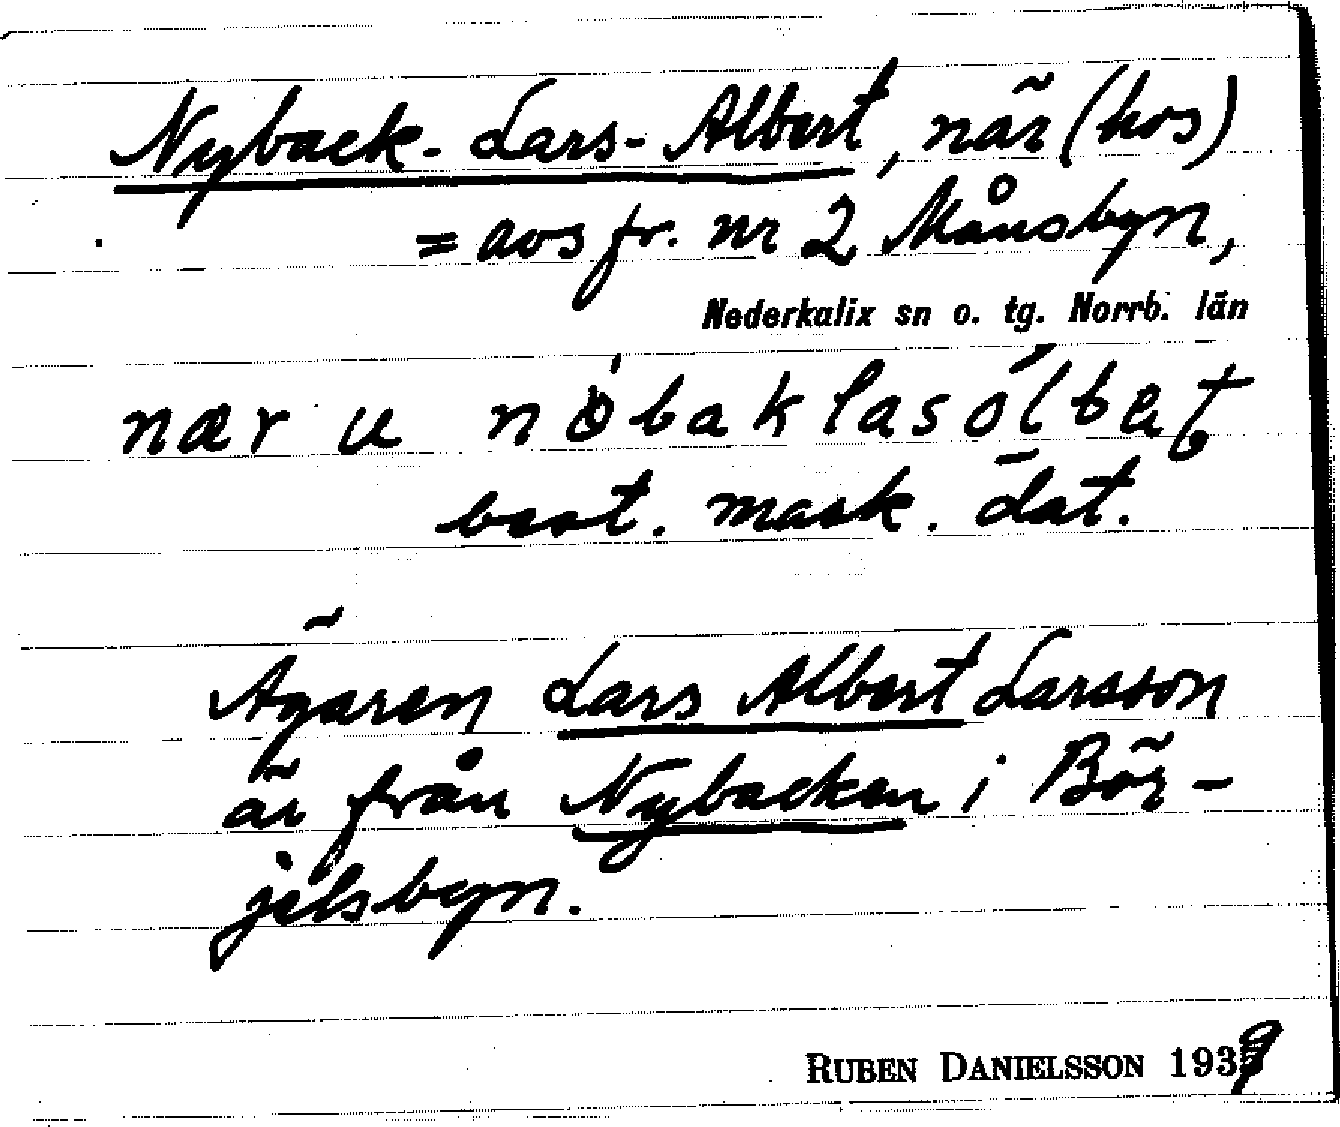 Nyback-Lars-Albert, när (hos)
= avs fr. nr 2 Månsbyn,
Nederkalix sn o. tg. Norrb. län
nær u nöbaklasólbat
best. mask. dat.
Ägaren Lars Albert Larsson
är från Nybacken i Bör-
jelsbyn.
RUBEN DANIELSSON 1939